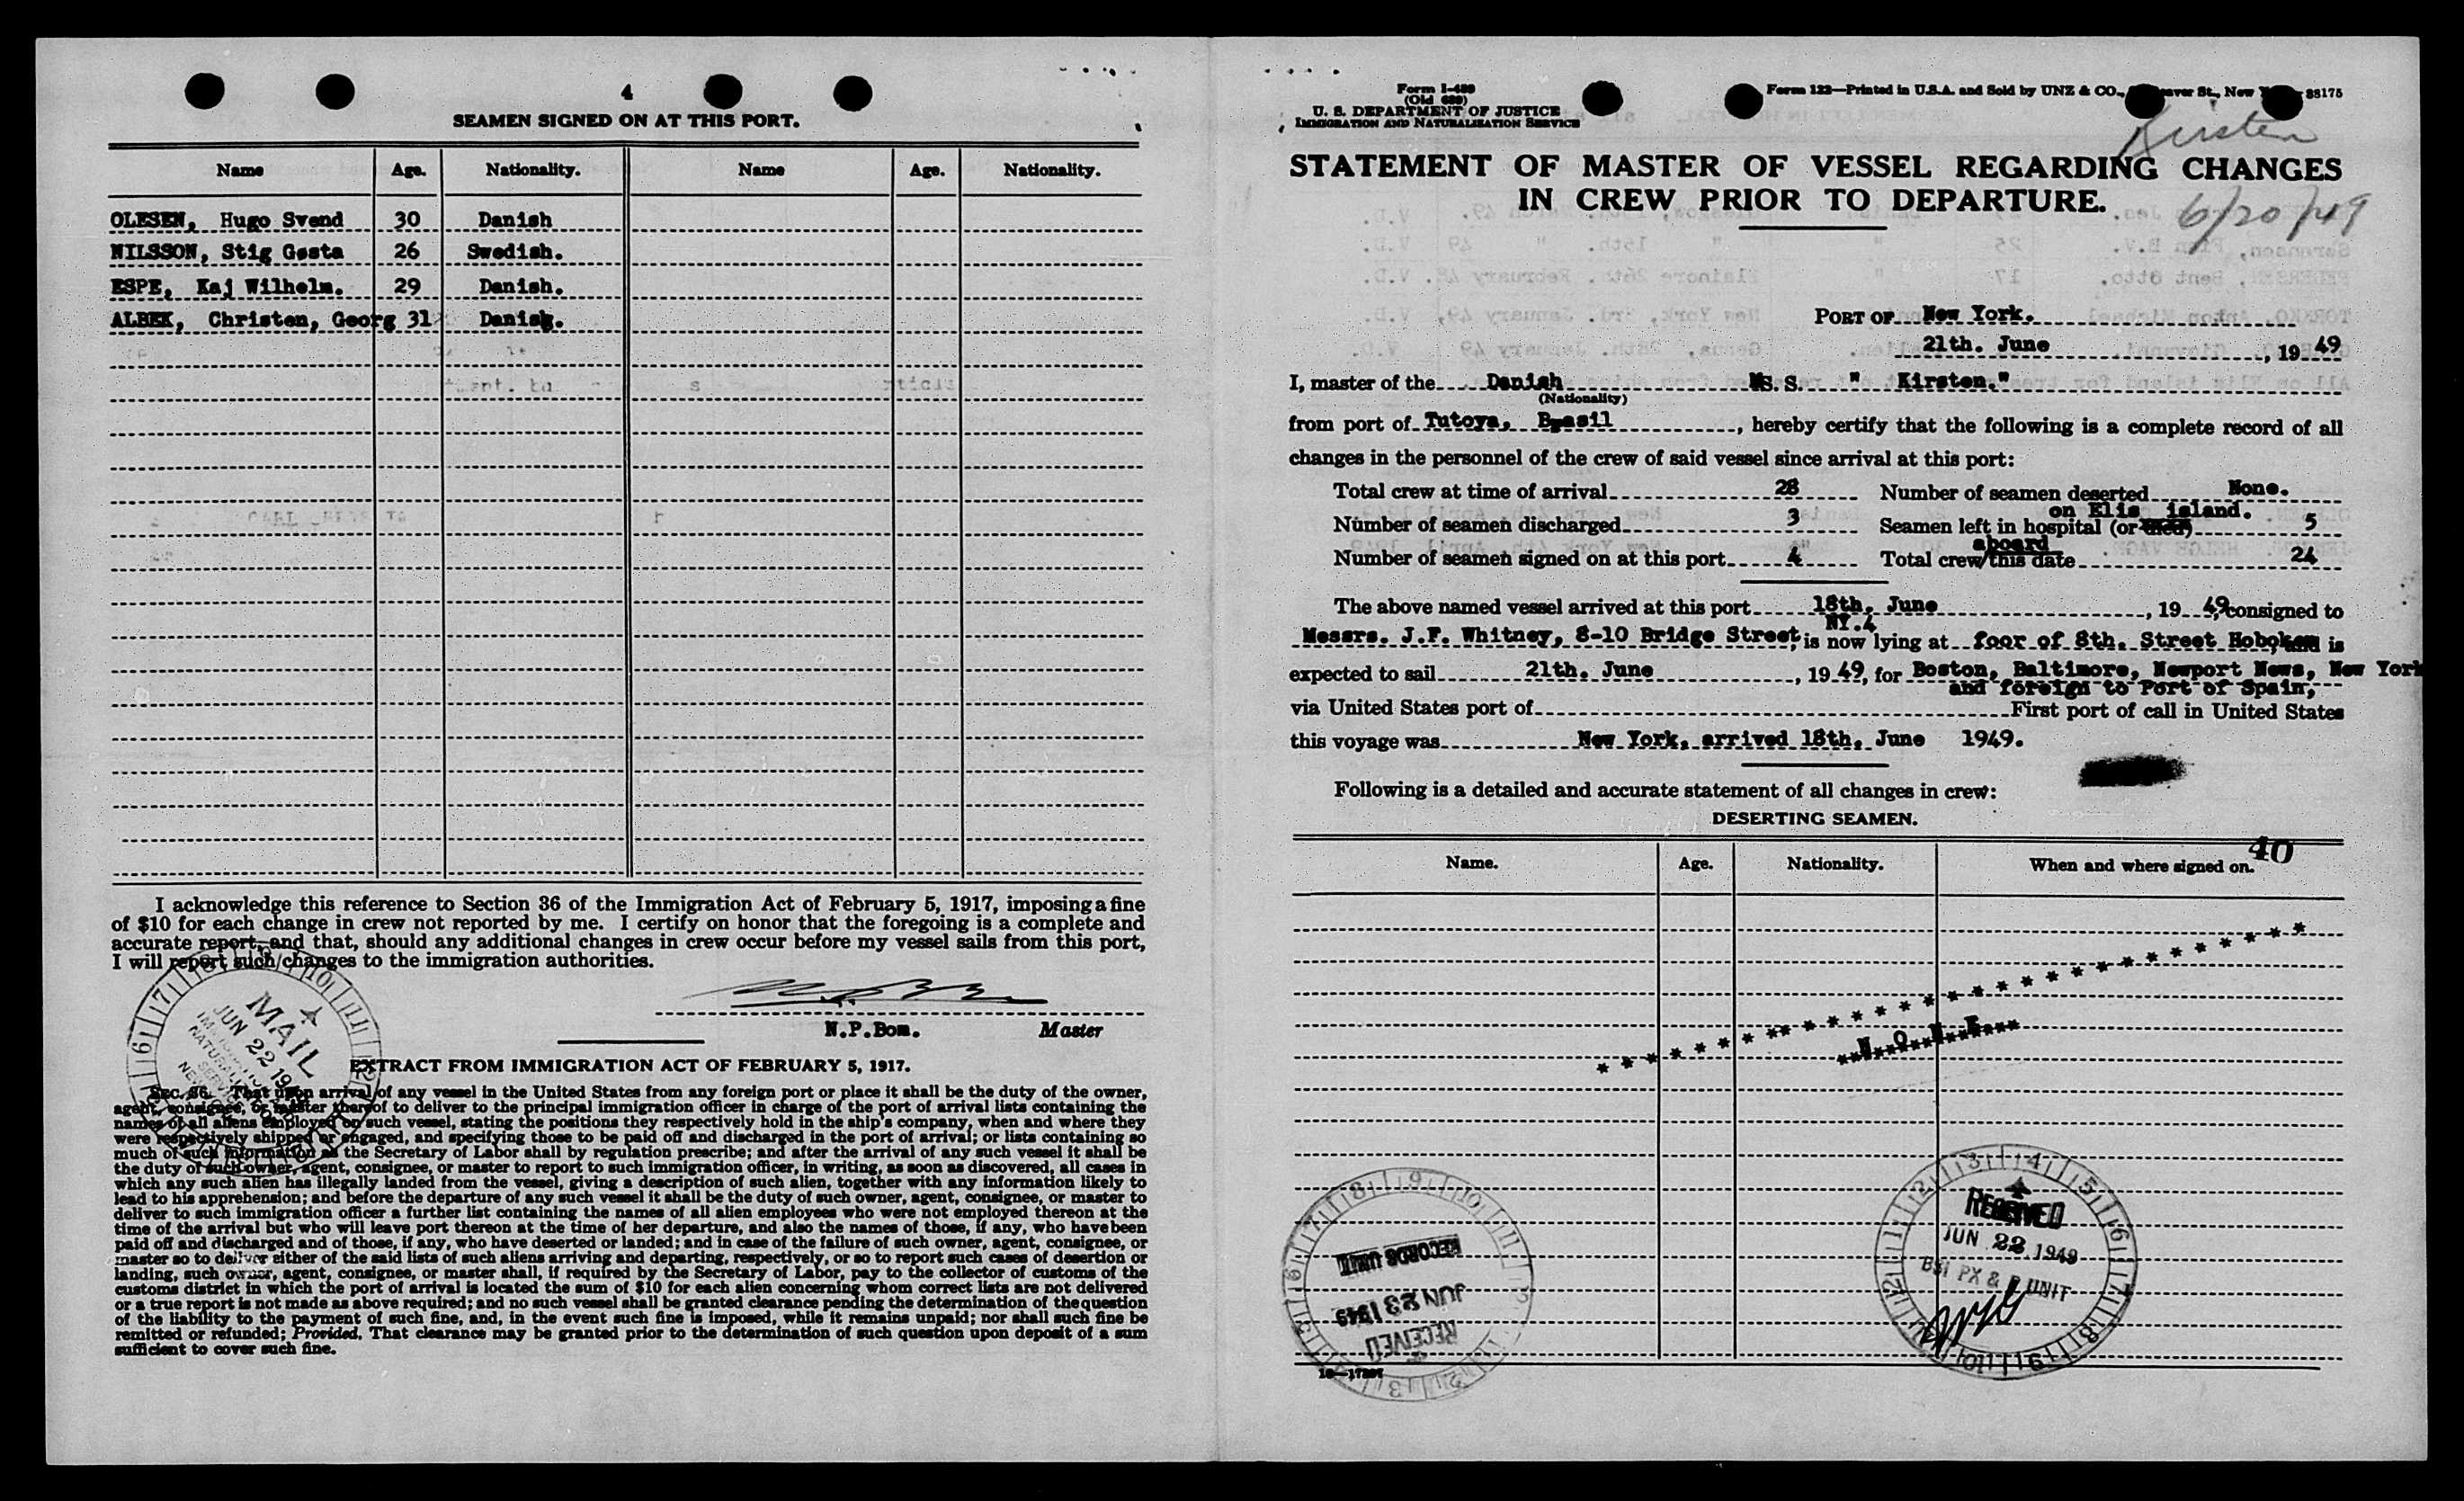 4
SEAMEN SIGNED ON AT THIS PORT.
Name Age. Nationality. Name Age. Nationality.
OLESEN, Hugo Svend 30 Danish
NILSSON, Stig Gøsta 26 Swedish.
ESPE, Kaj Wilhelm. 29 Danish.
ALBEK, Christen, Georg 31 Danish.
I acknowledge this reference to Section 36 of the Immigration Act of February 5, 1917, imposing a fine
of $10 for each change in crew not reported by me. I certify on honor that the foregoing is a complete and
accurate report, and that, should any additional changes in crew occur before my vessel sails from this port,
I will report such changes to the immigration authorities.
N.P.Bom. Master
MAIL
JUN 22
EXTRACT FROM IMMIGRATION ACT OF FEBRUARY 5, 1917.
SEC. 36. That upon arrival of any vessel in the United States from any foreign port or place it shall be the duty of the owner,
agent, consignee, or master thereof to deliver to the principal immigration officer in charge of the port of arrival lists containing the
names of all aliens employed on such vessel, stating the positions they respectively hold in the ship's company, when and where they
were respectively shipped or engaged, and specifying those to be paid off and discharged in the port of arrival; or lists containing so
much of such information as the Secretary of Labor shall by regulation prescribe; and after the arrival of any such vessel it shall be
the duty of such owner, agent, consignee, or master to report to such immigration officer, in writing, as soon as discovered, all cases in
which any such alien has illegally landed from the vessel, giving a description of such alien, together with any information likely to
lead to his apprehension; and before the departure of any such vessel it shall be the duty of such owner, agent, consignee, or master to
deliver to such immigration officer a further list containing the names of all alien employees who were not employed thereon at the
time of the arrival but who will leave port thereon at the time of her departure, and also the names of those, if any, who have been
paid off and discharged and of those, if any, who have deserted or landed; and in case of the failure of such owner, agent, consignee, or
master so to deliver either of the said lists of such aliens arriving and departing, respectively, or so to report such cases of desertion or
landing, such owner, agent, consignee, or master shall, if required by the Secretary of Labor, pay to the collector of customs of the
customs district in which the port of arrival is located the sum of $10 for each alien concerning whom correct lists are not delivered
or a true report is not made as above required; and no such vessel shall be granted clearance pending the determination of the question
of the liability to the payment of such fine, and, in the event such fine is imposed, while it remains unpaid; nor shall such fine be
remitted or refunded; Provided, That clearance may be granted prior to the determination of such question upon deposit of a sum
sufficient to cover such fine.
Form I-489
(Old 689)
U. S. DEPARTMENT OF JUSTICE
IMMIGRATION AND NATURALIZATION SERVICE
Form 122—Printed in U.S.A. and Sold by UNZ & CO., St., New 38175
Kirsten
STATEMENT OF MASTER OF VESSEL REGARDING CHANGES
IN CREW PRIOR TO DEPARTURE.
6/20/49
PORT OF New York.
21th. June, 19 49
I, master of the Danish M S. S. " Kirsten."
(Nationality)
from port of Tutoya, Brasil, hereby certify that the following is a complete record of all
changes in the personnel of the crew of said vessel since arrival at this port:
Total crew at time of arrival 28 Number of seamen deserted None.
on Elis island.
Number of seamen discharged 3 Seamen left in hospital (or died) 5
aboard
Number of seamen signed on at this port 4 Total crew/this date 24
The above named vessel arrived at this port 18th. June, 19 49, consigned to
NY.4
Messrs. J.F. Whitney, 8-10 Bridge Street, is now lying at foor of 8th. Street Hoboken and is
expected to sail 21th. June, 19 49, for Boston, Baltimore, Newport News, New York
and foreign to Port of Spain,
via United States port of First port of call in United States
this voyage was New York, arrived 18th. June 1949.
Following is a detailed and accurate statement of all changes in crew:
DESERTING SEAMEN.
40
Name. Age. Nationality. When and where signed on.
N O N E
RECORDS UNIT
JUN 23 1949
RECEIVED
RECEIVED
JUN 22 1949
BSI PX & P UNIT